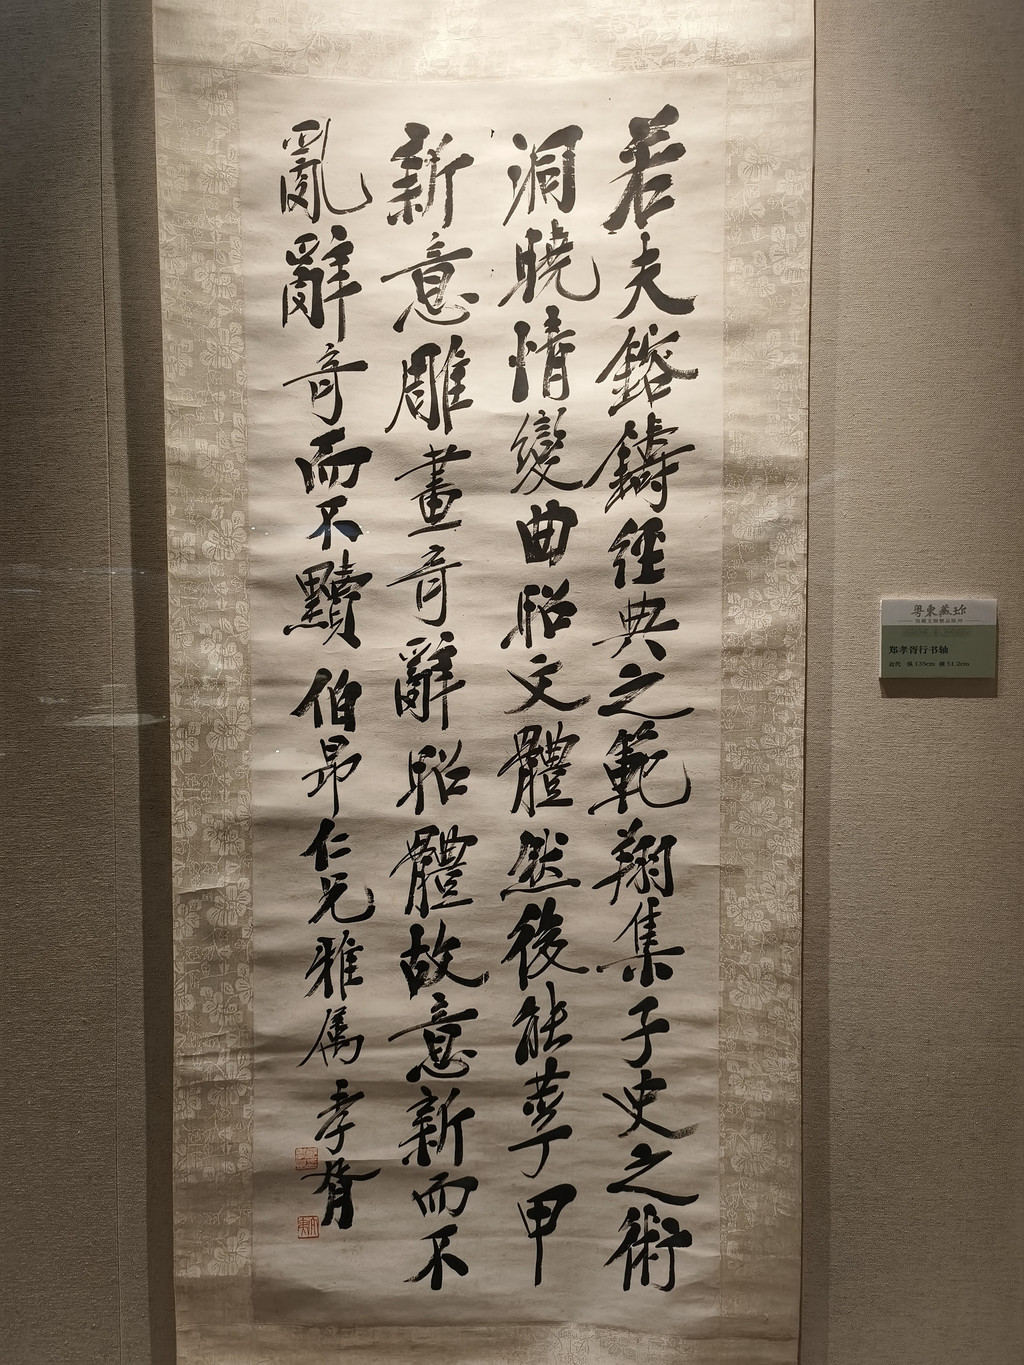 若夫鎔鑄經典之範翔集子史之術
洞曉情變曲昭文體然後能莩甲
新意雕畫奇辭昭體故意新而不
亂辭奇而不黷 伯昂仁兄雅属 孝胥
粤東藏珍
郑孝胥行书轴
近代 纵135cm 横51.2cm